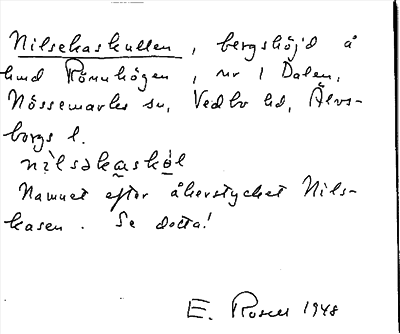 Nilsekaskullen, bergshöjd å
hmd Rönnhögen, nr 1 Dalen,
Nössemarks sn, Vedbo hd, Älvs-
borgs l.
nìlsəkaskól
Namnet efter åkerstycket Nils-
kasen. Se detta!
E. Rosell 1948